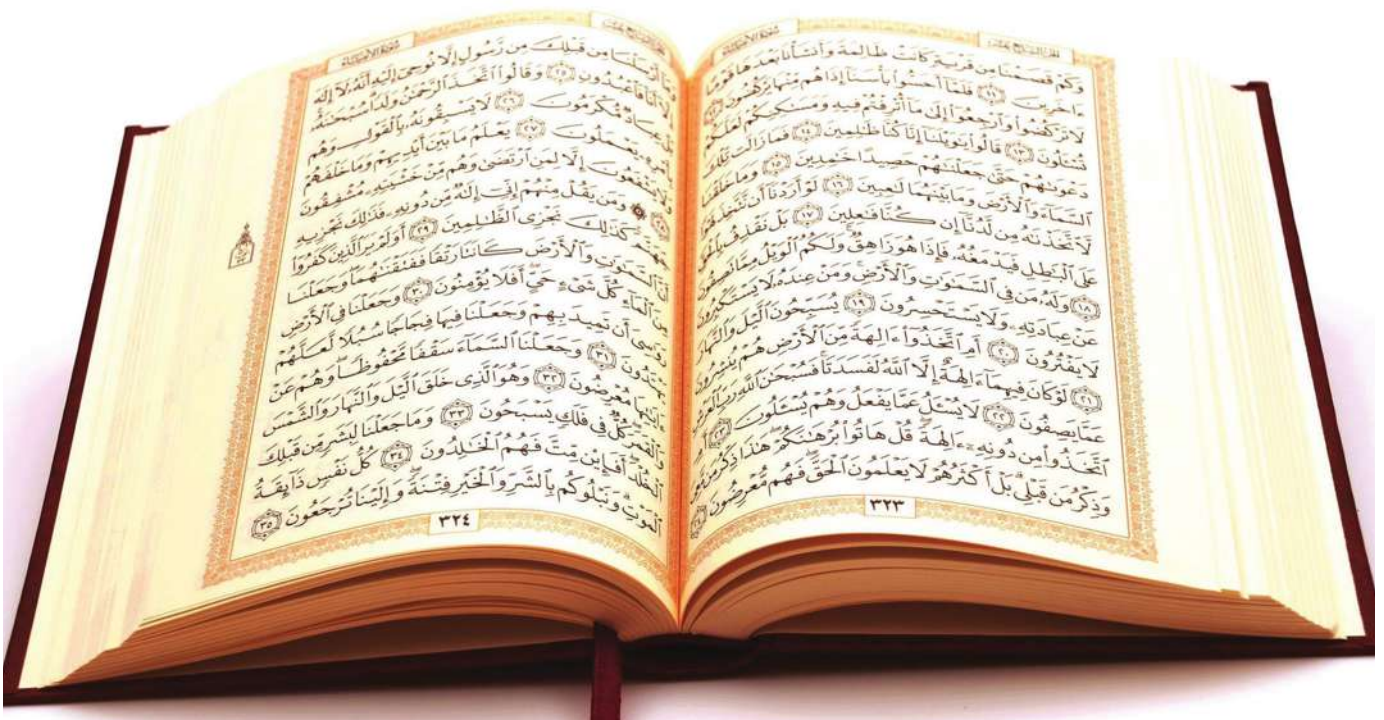 الجزء السابع عشر سورة الأنبياء
وَكَمْ قَصَمْنَا مِن قَرْيَةٍ كَانَتْ ظَالِمَةً وَأَنشَأْنَا بَعْدَهَا قَوْمًا
ءَاخَرِينَ ١١ فَلَمَّآ أَحَسُّوا۟ بَأْسَنَآ إِذَا هُم مِّنْهَا يَرْكُضُونَ ١٢
لَا تَرْكُضُوا۟ وَٱرْجِعُوٓا۟ إِلَىٰ مَآ أُتْرِفْتُمْ فِيهِ وَمَسَـٰكِنِكُمْ لَعَلَّكُمْ
تُسْـَٔلُونَ ١٣ قَالُوا۟ يَـٰوَيْلَنَآ إِنَّا كُنَّا ظَـٰلِمِينَ ١٤ فَمَا زَالَت تِّلْكَ
دَعْوَىٰهُمْ حَتَّىٰ جَعَلْنَـٰهُمْ حَصِيدًا خَـٰمِدِينَ ١٥ وَمَا خَلَقْنَا
ٱلسَّمَآءَ وَٱلْأَرْضَ وَمَا بَيْنَهُمَا لَـٰعِبِينَ ١٦ لَوْ أَرَدْنَآ أَن نَّتَّخِذَ لَهْوًا
لَّٱتَّخَذْنَـٰهُ مِن لَّدُنَّآ إِن كُنَّا فَـٰعِلِينَ ١٧ بَلْ نَقْذِفُ بِٱلْحَقِّ
عَلَى ٱلْبَـٰطِلِ فَيَدْمَغُهُۥ فَإِذَا هُوَ زَاهِقٌ ۚ وَلَكُمُ ٱلْوَيْلُ مِمَّا تَصِفُونَ
١٨ وَلَهُۥ مَن فِى ٱلسَّمَـٰوَٰتِ وَٱلْأَرْضِ ۚ وَمَنْ عِندَهُۥ لَا يَسْتَكْبِرُونَ
عَنْ عِبَادَتِهِۦ وَلَا يَسْتَحْسِرُونَ ١٩ يُسَبِّحُونَ ٱلَّيْلَ وَٱلنَّهَارَ
لَا يَفْتُرُونَ ٢٠ أَمِ ٱتَّخَذُوٓا۟ ءَالِهَةً مِّنَ ٱلْأَرْضِ هُمْ يُنشِرُونَ
٢١ لَوْ كَانَ فِيهِمَآ ءَالِهَةٌ إِلَّا ٱللَّهُ لَفَسَدَتَا ۚ فَسُبْحَـٰنَ ٱللَّهِ رَبِّ ٱلْعَرْشِ
عَمَّا يَصِفُونَ ٢٢ لَا يُسْـَٔلُ عَمَّا يَفْعَلُ وَهُمْ يُسْـَٔلُونَ ٢٣ أَمِ
ٱتَّخَذُوا۟ مِن دُونِهِۦٓ ءَالِهَةً ۖ قُلْ هَاتُوا۟ بُرْهَـٰنَكُمْ ۖ هَـٰذَا ذِكْرُ مَن مَّعِىَ
وَذِكْرُ مَن قَبْلِى ۗ بَلْ أَكْثَرُهُمْ لَا يَعْلَمُونَ ٱلْحَقَّ ۖ فَهُم مُّعْرِضُونَ ٢٤
٣٢٣
الجزء السابع عشر سورة الأنبياء
وَمَآ أَرْسَلْنَا مِن قَبْلِكَ مِن رَّسُولٍ إِلَّا نُوحِىٓ إِلَيْهِ أَنَّهُۥ لَآ إِلَـٰهَ
إِلَّآ أَنَا۠ فَٱعْبُدُونِ ٢٥ وَقَالُوا۟ ٱتَّخَذَ ٱلرَّحْمَـٰنُ وَلَدًا ۗ سُبْحَـٰنَهُۥ ۚ
بَلْ عِبَادٌ مُّكْرَمُونَ ٢٦ لَا يَسْبِقُونَهُۥ بِٱلْقَوْلِ وَهُم
بِأَمْرِهِۦ يَعْمَلُونَ ٢٧ يَعْلَمُ مَا بَيْنَ أَيْدِيهِمْ وَمَا خَلْفَهُمْ
وَلَا يَشْفَعُونَ إِلَّا لِمَنِ ٱرْتَضَىٰ وَهُم مِّنْ خَشْيَتِهِۦ مُشْفِقُونَ
٢٨ ۞ وَمَن يَقُلْ مِنْهُمْ إِنِّىٓ إِلَـٰهٌ مِّن دُونِهِۦ فَذَٰلِكَ نَجْزِيهِ
جَهَنَّمَ ۚ كَذَٰلِكَ نَجْزِى ٱلظَّـٰلِمِينَ ٢٩ أَوَلَمْ يَرَ ٱلَّذِينَ كَفَرُوٓا۟
أَنَّ ٱلسَّمَـٰوَٰتِ وَٱلْأَرْضَ كَانَتَا رَتْقًا فَفَتَقْنَـٰهُمَا ۖ وَجَعَلْنَا
مِنَ ٱلْمَآءِ كُلَّ شَىْءٍ حَىٍّ ۖ أَفَلَا يُؤْمِنُونَ ٣٠ وَجَعَلْنَا فِى ٱلْأَرْضِ
رَوَٰسِىَ أَن تَمِيدَ بِهِمْ وَجَعَلْنَا فِيهَا فِجَاجًا سُبُلًا لَّعَلَّهُمْ
يَهْتَدُونَ ٣١ وَجَعَلْنَا ٱلسَّمَآءَ سَقْفًا مَّحْفُوظًا ۖ وَهُمْ عَنْ
ءَايَـٰتِهَا مُعْرِضُونَ ٣٢ وَهُوَ ٱلَّذِى خَلَقَ ٱلَّيْلَ وَٱلنَّهَارَ وَٱلشَّمْسَ
وَٱلْقَمَرَ ۖ كُلٌّ فِى فَلَكٍ يَسْبَحُونَ ٣٣ وَمَا جَعَلْنَا لِبَشَرٍ مِّن قَبْلِكَ
ٱلْخُلْدَ ۖ أَفَإِي۟ن مِّتَّ فَهُمُ ٱلْخَـٰلِدُونَ ٣٤ كُلُّ نَفْسٍ ذَآئِقَةُ
ٱلْمَوْتِ ۗ وَنَبْلُوكُم بِٱلشَّرِّ وَٱلْخَيْرِ فِتْنَةً ۖ وَإِلَيْنَا تُرْجَعُونَ ٣٥
٣٢٤